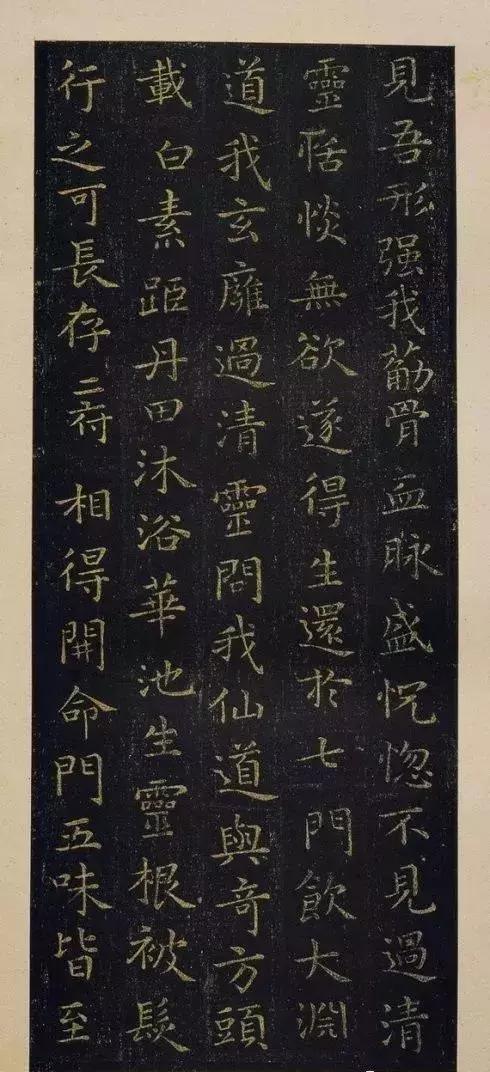 見吾形强我筋骨血脉盛怳惚不見過清
靈恬惔無欲遂得生還於七門飲大淵
道我玄廱過清靈問我仙道與奇方頭
載白素距丹田沐浴華池生靈根被髮
行之可長存二府相得開命門五味皆至